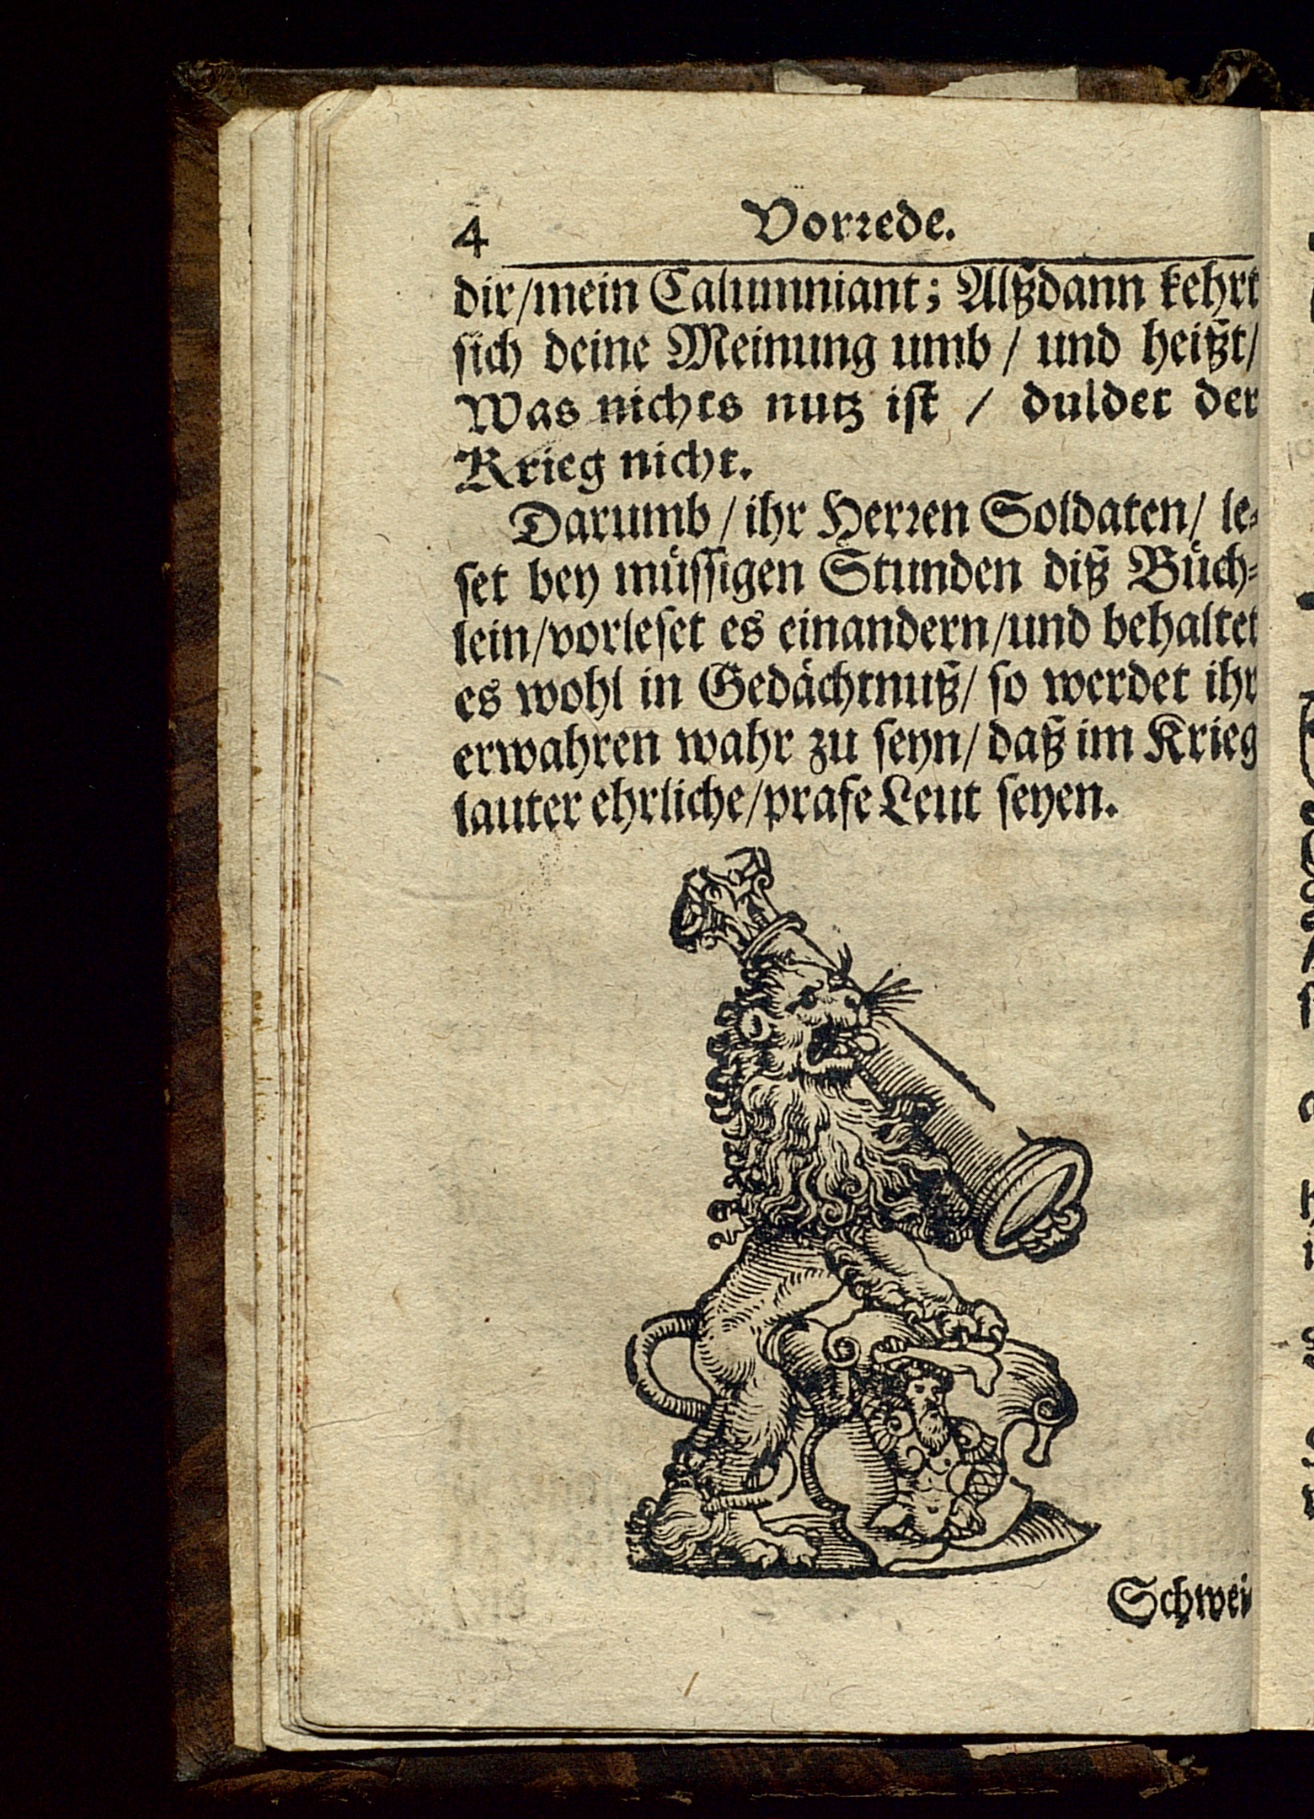 4 Vorrede.
dir/mein Calumniant; Alßdann kehrt
sich deine Meinung umb / und heißt/
Was nichts nutz ist / duldet der
Krieg nicht.
Darumb / ihr Herren Soldaten/ le-
set bey müssigen Stunden diß Büch-
lein/vorleset es einandern/und behaltet
es wohl in Gedächtnuß/ so werdet ihr
erwahren wahr zu seyn/ daß im Krieg
lauter ehrliche/prafe Leut seyen.
Schwei-